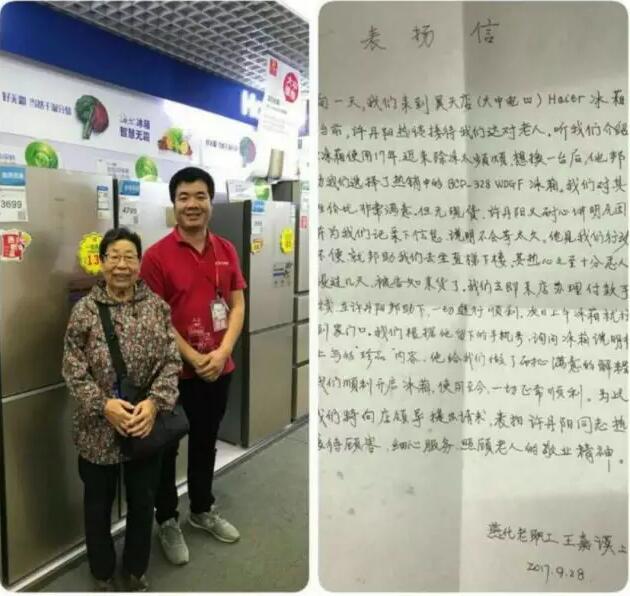 好无霜 当然干湿分储
冰箱
智慧无霜
3699
4799
表扬信
一天，我们来到昊天店（大中电四）Haier冰箱
当前，许丹阳热情接待我们这对老人。听我们介绍
冰箱使用17年，近来除冰太频烦，想换一台后，他帮
我们选择了热销中的BCD-328 WDGF 冰箱。我们对其
性价比非常满意。但无现货，许丹阳又耐心讲明原因
并为我们记录下信息，说明不会等太久。他见我们行动
不便，就帮助我们去坐直梯下楼，其热心之至十分感人
没过几天，被告知来货了。我们立即来店办理付款手
续，在许丹阳帮助下，一切进行顺利，次日上午冰箱就
到家门口。我们根据他留下的手机号，询问冰箱说明书
上写的"珍品"内容，他给我们做了耐心满意的解释
我们顺利开启冰箱，使用至今，一切正常顺利。为此
我们将向店领导提出请求，表扬许丹阳同志热
待顾客、细心服务、照顾老人的敬业精神。
燕化老职工 王嘉谟 上
2017.9.28